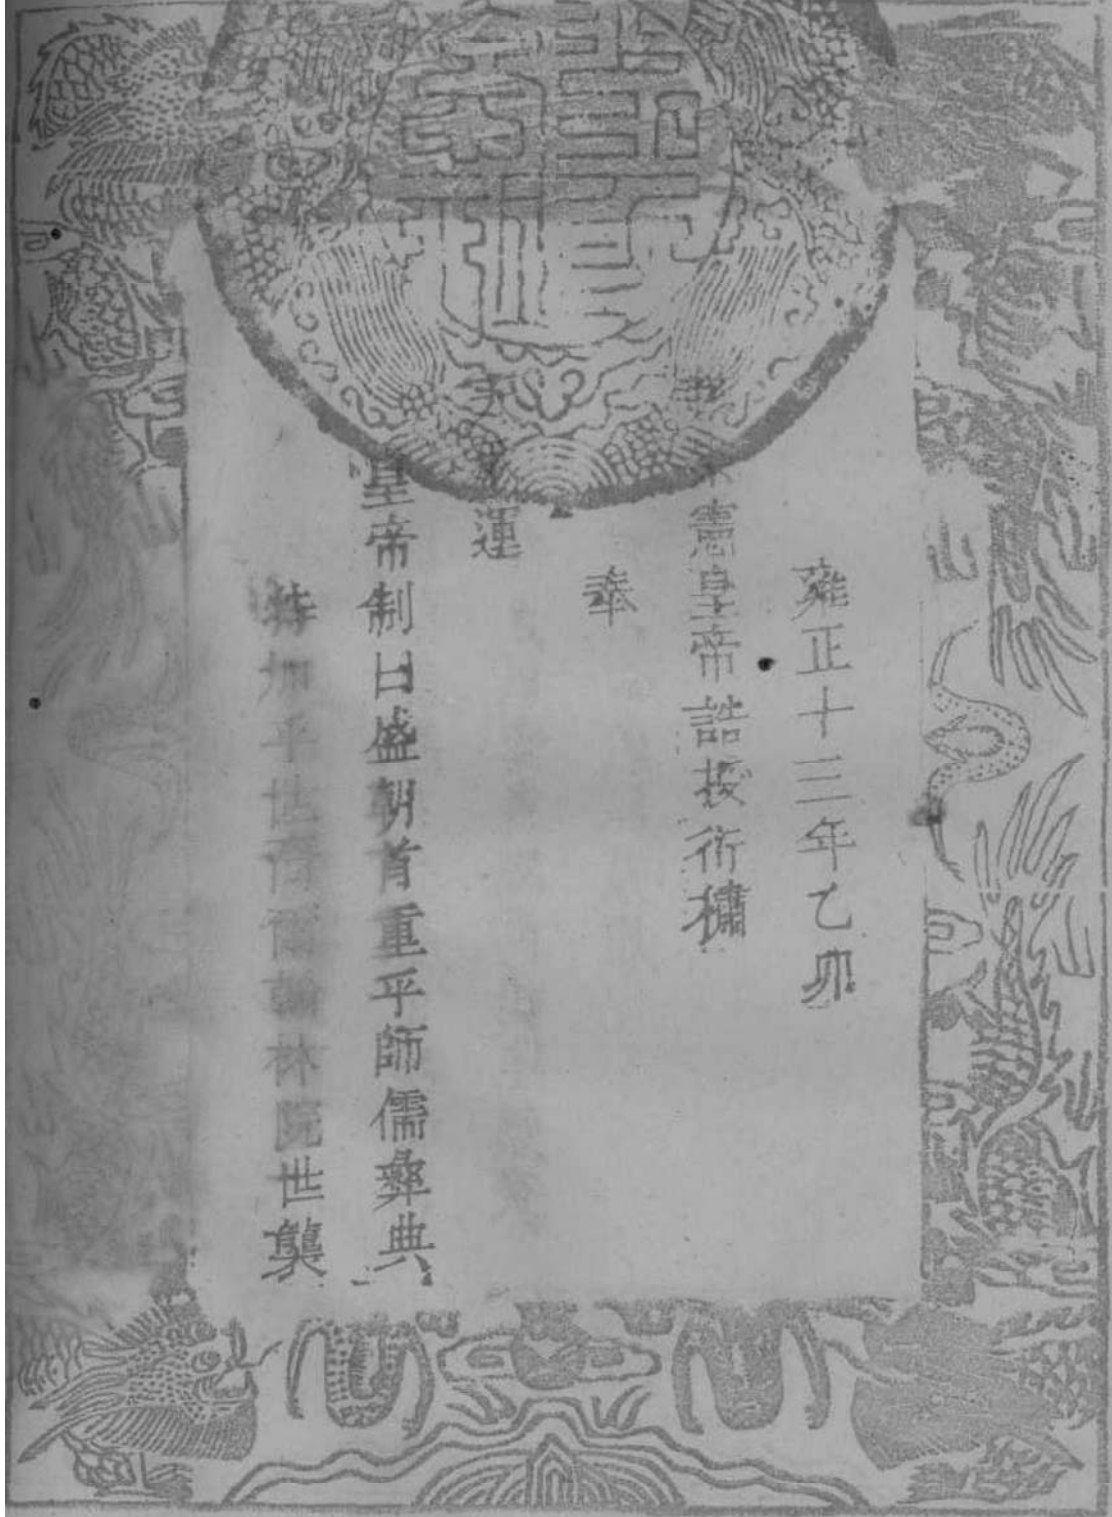 雍正十三年乙卯
憲皇帝誥授衍橚
奉
天運
皇帝制曰盛朝首重乎師儒彝典
特加乎世裔爾翰林院世襲